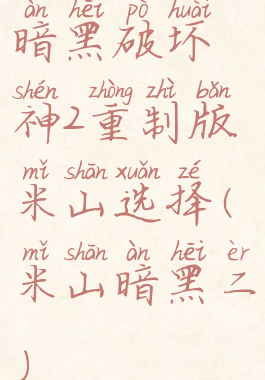 àn hēi pò huài
暗黑破坏
shén zhòng zhì bǎn
神2重制版
mǐ shān xuǎn zé
米山选择(
mǐ shān àn hēi èr
米山暗黑二
)